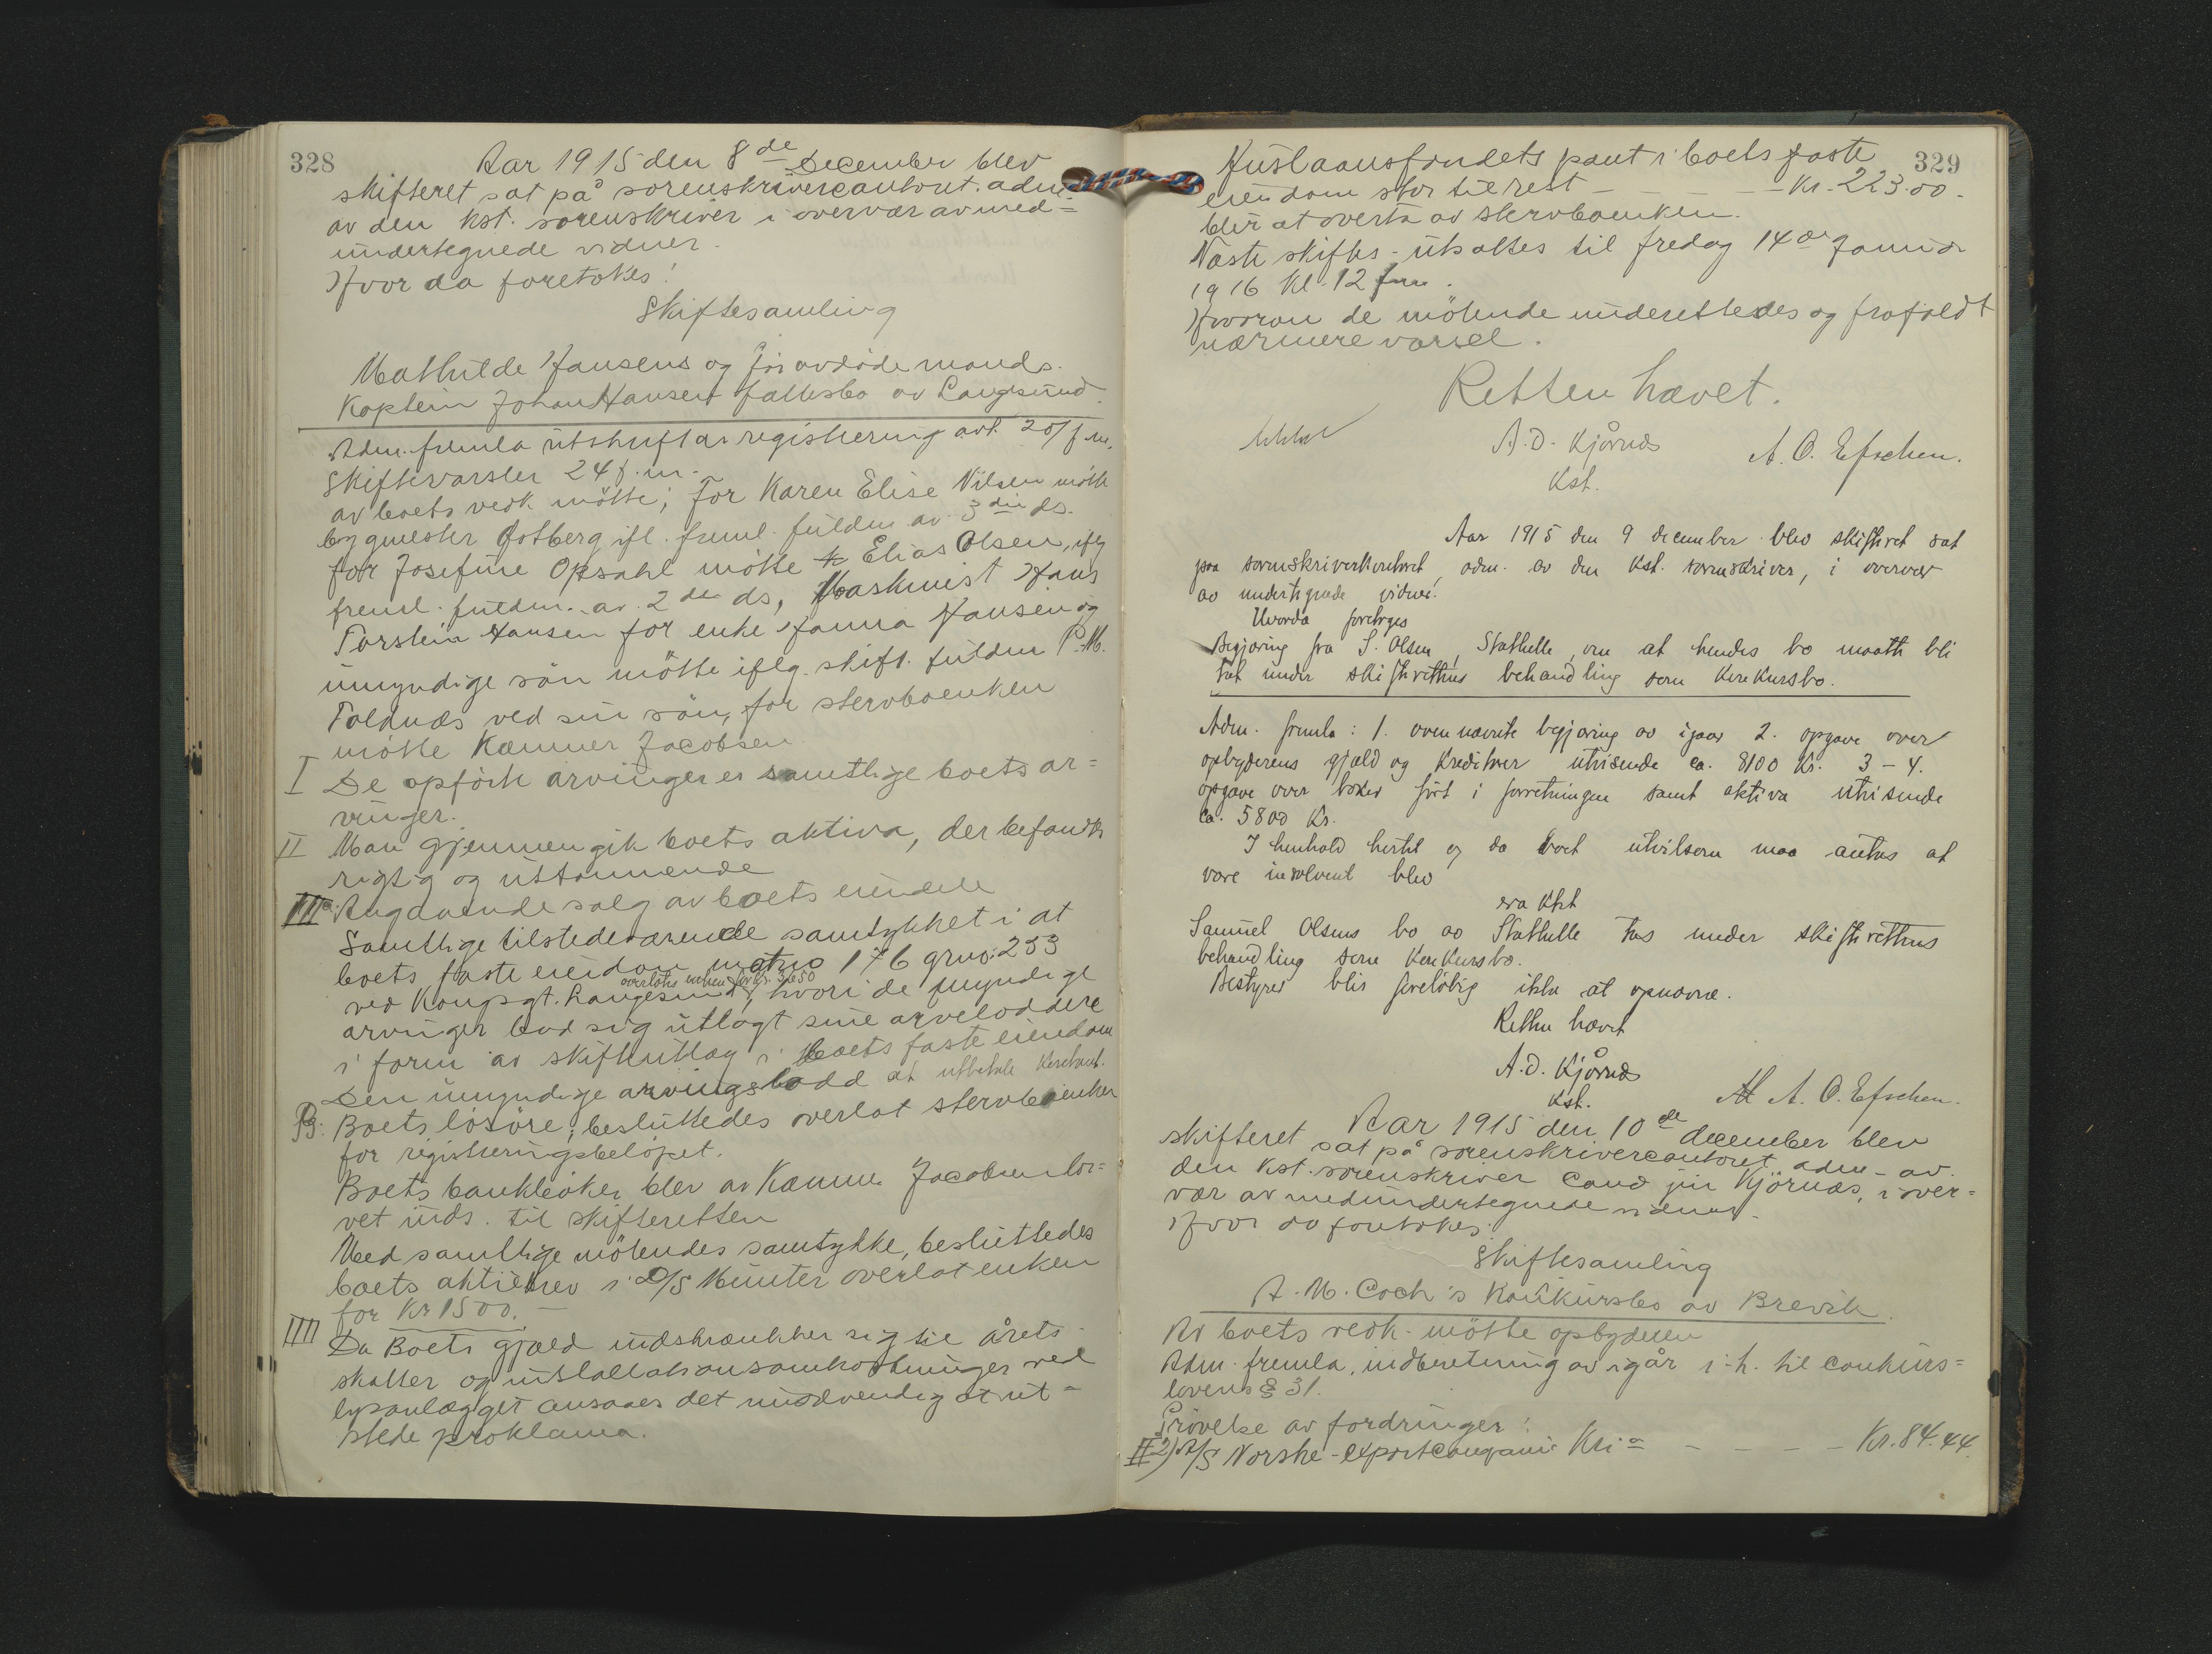 328
Aar 1915 den 8de December blev
skifteret sat på sorenskrivercantoret. adm.
av den kst. sorenskriver i overvær av med=
undertegnede vidner.
Hvor da foretokes!
Skiftesamling
Mathilde Hansens og før avdøde mands
Kaptein Johan Hansen fællesbo av Langesund.
Adm. fremla utskrift av registrering avh. 20/f.m.
Skiftevarsler 24 f.m.
av boets vedk. mötte; For Karen Elise Nilsen mötte
bygmester Ostberg ifl. freml. fuldm. av 3die ds.
for Josefine Opsahl mötte Elias Olsen, iflg
freml. fuldm. av 2de ds, Maskinist Hans
Torstein Hansen for enke Hanna Hansen og
umyndige sön mötte iflg. skift. fuldm P.M.
Foldnæs ved sin sön, for stervboenken
mötte Kæmner Jacobsen
I De opförte arvinger er samtlige boets ar=
vinger.
II Man gjennemgik boets aktiva, der befandtes
rigtig og uttömmende
III a. Angaaende salg av boets eiendele
Samtlige tilstedeværende samtykket i at
boets faste eiendom matno 176 grno: 233
ved Kongsgt. Langesund, hvori de myndige
overlotes enken for kr. 3650
arvinger bad sig utlagt sine arvelodder
i form av skifteutlæg i boets faste eiendom
Den umyndige arvingslodd at utbetale kontant.
B: Boets lösöre, besluttedes overlat stervboenken
for registreringsbelöpet.
Boets bankböker blev av Kæmner Jacobsen lo=
vet inds. til skifteretten
Med samtlige mötendes samtykke, besluttedes
boets aktiebrev i D/S Munter overlat enken
for Kr 1500.-
IIII Da Boets gjæld indskrænkker sig til årets
skatter og installationsomkostninger ved
lysanlægget ansaaes det unödvendig at ut=
stede proklama.
329
Huslaansfondets pant i boets faste
eiendom stor til rest - - - - - Kr. 223.00.
blir at overta av stervboenken.
Næste skiftes. utsattes til fredag 14de Januar
1916 kl. 12 fm.
Hvorom de mötende underettedes og frafaldt
nærmere varsel.
Retten hævet.
A.D. Kjörnæs
Kst.
A. O. Efschen.
Aar 1915 den 9 december blev skifteret sat
paa sorenskriverkontoret, adm. av den kst. sorenskriver, i overvær
av undertegnede vidner.
Hvorda foretoges
Begjæring fra S. Olsen, Stathelle, om at hendes bo maatte bli
tat under skifterettens behandling som konkursbo.
Adm. fremla: 1. ovennævnte begjæring av igaar 2. opgave over
opbyderens gjæld og kreditorer utvisende ca. 8100 kr. 3 - 4.
opgave over boker fört i forretningen samt aktiva utvisende
ca. 5800 Kr.
I henhold hertil og da boet utvilsom maa antas at
være insolvent blev
Samuel Olsens bo av Stathelle tas under skifterettens
behandling som konkursbo.
Bestyrer blir foreløbig ikke at opnævne.
Retten hævet
A.D. Kjörnæs
Kst.
A. O. Efschen.
Aar 1915 den 10de december blev
skifteret sat på sorenskrivercontoret adm - av
den kst. sorenskriver Cand jur Kjörnæs, i over=
vær av medundertegnede vidner.
Hvor da foretokes:
Skiftesamling
A. M. Coch's Konkursbo av Brevik.
Av boets vedk. mötte opbyderen
Adm. fremla, indberetning av igår i h. til conkurs=
lovens § 31.
Prövelse av fordringer:
II 2) A/S Norske-exportcompani Kria - - - - - Kr. 84.44